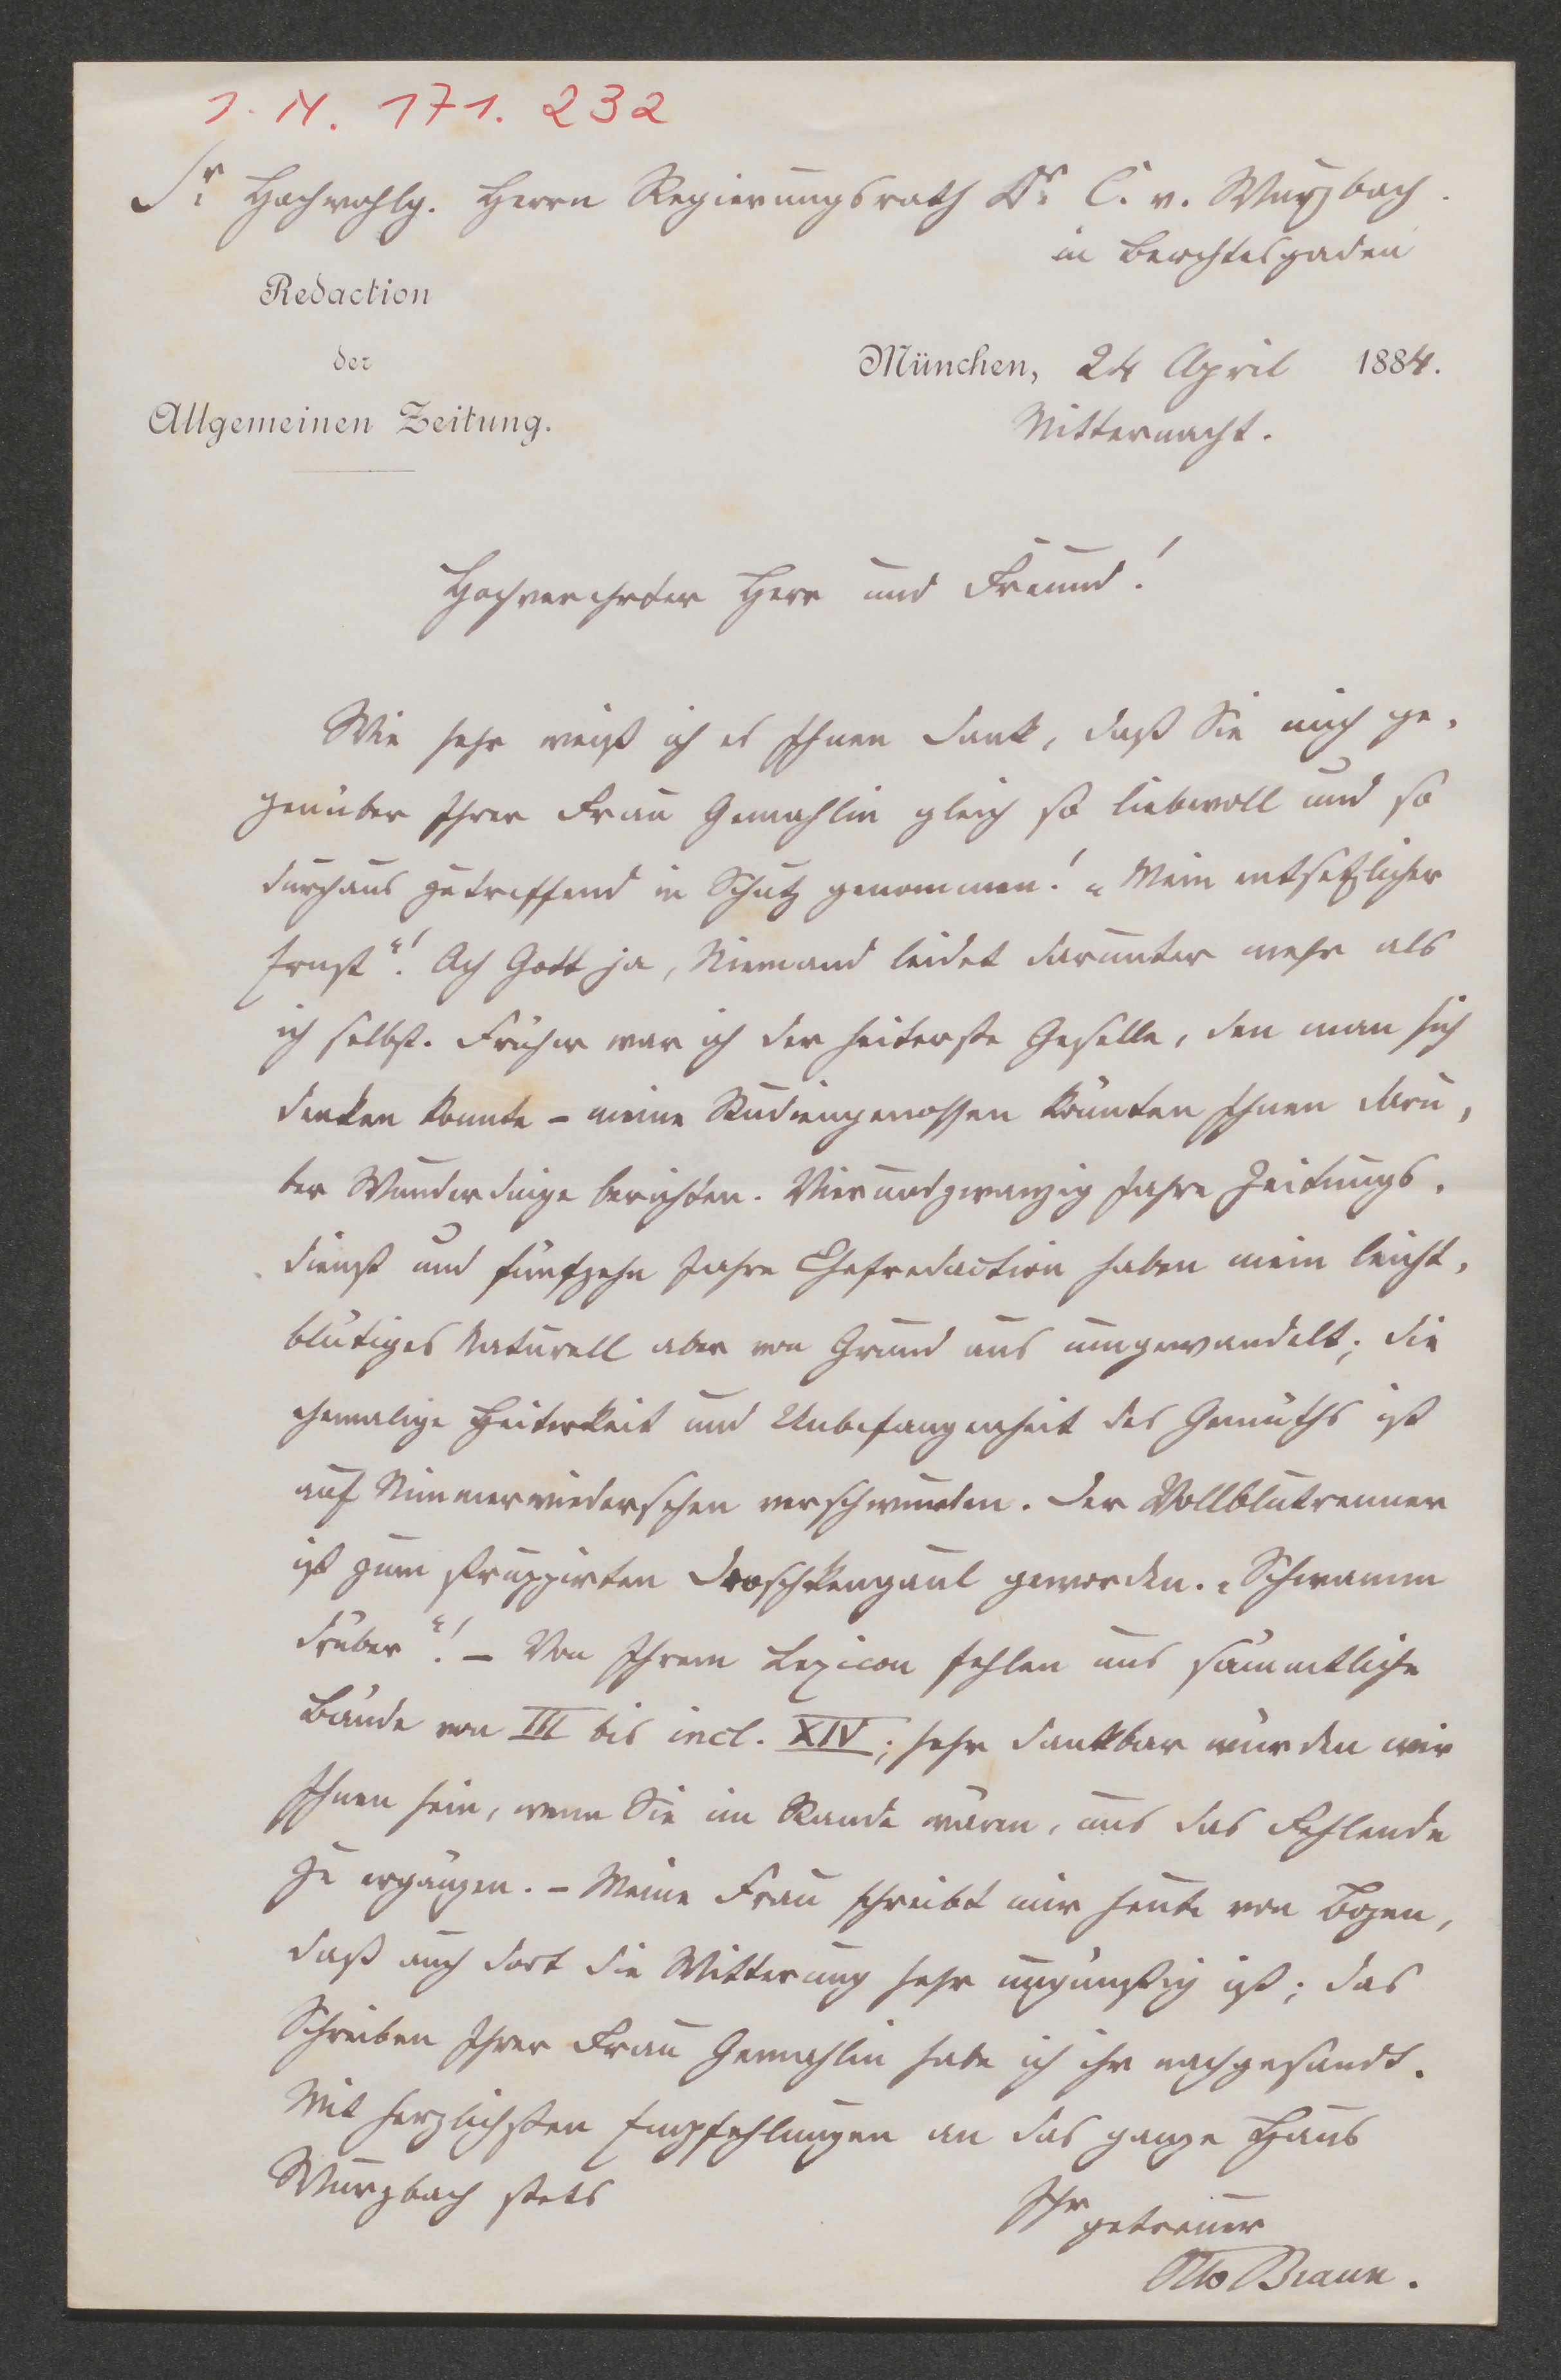 I. N. 171.232
Sr. Hochwohlg. Herrn Regierungsrath Dr. C. v. Wurzbach.
in Berchtesgaden
Redaction
der
Allgemeinen Zeitung.
München, 24 April 1884.
Mitternacht.
Hochverehrter Herr und Freund!
Wie sehr weiß ich es Ihnen Dank, daß Sie mich ge-
genüber Ihrer Frau Gemahlin gleich so liebevoll und so
durchaus zutreffend in Schutz genommen! „Mein entsetzlicher
Ernst“! Ach Gott ja, Niemand leidet darunter mehr als
ich selbst. Früher war ich der heiterste Geselle, den man sich
denken konnte – meine Studiengenossen könnten Ihnen darü-
ber Wunderdinge berichten. Vierundzwanzig Jahre Zeitungs-
dienst und fünfzehn Jahre Chefredaction haben mein leicht-
blütiges Naturell aber von Grund aus umgewandelt; die
ehemalige Heiterkeit und Unbefangenheit des Gemüths ist
auf Nimmerwiedersehen verschwunden. Der Vollblutrenner
ist zum struppirten Droschkengaul geworden. „Schwamm
drüber“! – Von Ihrem Lexicon fehlen uns sämmtliche
Bände von III bis incl. XIV; sehr dankbar würden wir
Ihnen sein, wenn Sie im Stande wären, uns das Fehlende
zu ergänzen. – Meine Frau schreibt mir heute von Bozen,
daß auch dort die Witterung sehr ungünstig ist; das
Schreiben Ihrer Frau Gemahlin habe ich ihr nachgesandt.
Mit herzlichsten Empfehlungen an das ganze Haus
Wurzbach stets
Ihr getreuer
Otto Braun.